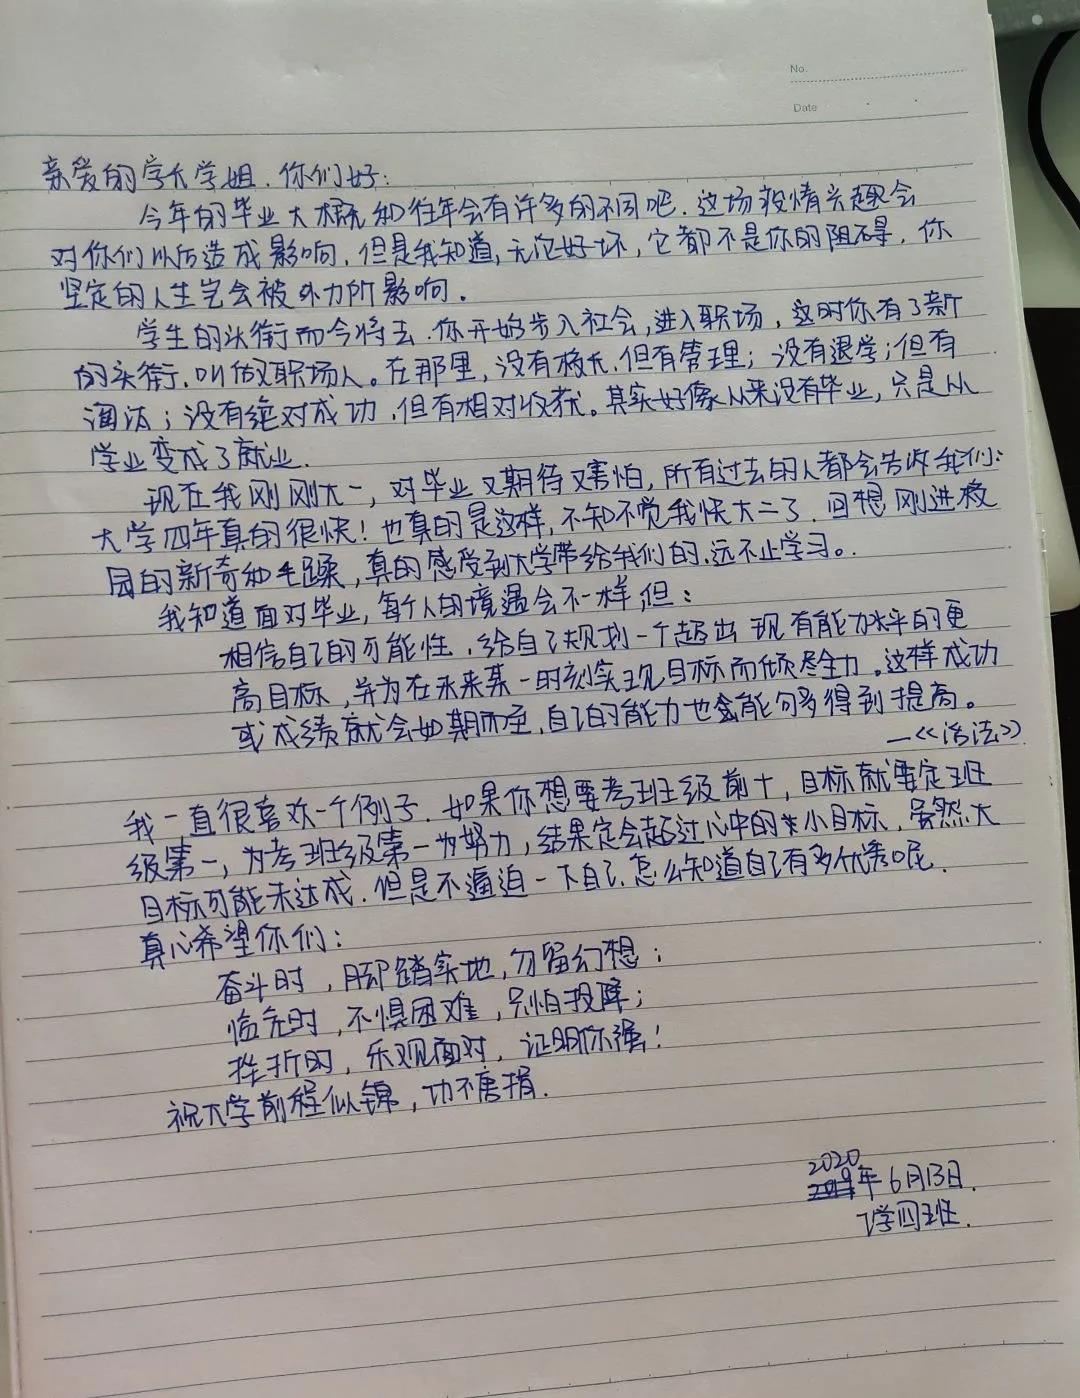 No.
Date
亲爱的学长学姐，你们好：
今年的毕业大概和往年会有许多的不同吧，这场疫情兴趣会
对你们以后造成影响，但是我知道，无论好坏，它都不是你的阻碍，你
坚定的人生岂会被外力所影响。
学生的头衔而今将去，你开始步入社会，进入职场，这时你有了新
的头衔，叫做职场人。在那里，没有校长，但有管理；没有退学；但有
淘汰；没有绝对成功，但有相对收获。其实好像从来没有毕业，只是从
学业变成了就业．
现在我刚刚大一，对毕业又期待又害怕，所有过去的人都会告诉我们：
大学四年真的很快！也真的是这样，不知不觉我快大二了．回想刚进校
园的新奇和毛躁，真的感受到大学带给我们的，远不止学习。
我知道面对毕业，每个人的境遇会不一样，但：
相信自己的可能性，给自己规划一个超出现有能力水平的更
高目标，并为在未来某一时刻实现目标而倾尽全力。这样成功
或成绩就会如期而至，自己的能力也会能够多得到提高。
—《活法》
我一直很喜欢一个例子．如果你想要考班级前十，目标就要定班
级第一，为考班级第一为努力，结果定会超过心中的小目标，虽然大
目标可能未达成，但是不逼迫一下自己，怎么知道自己有多优秀呢．
真心希望你们：
奋斗时，脚踏实地，勿留幻想；
临危时，不惧困难，只怕投降；
挫折时，乐观面对，证明你强！
祝大学前程似锦，功不唐捐．
2020年6月13日．
学四班．